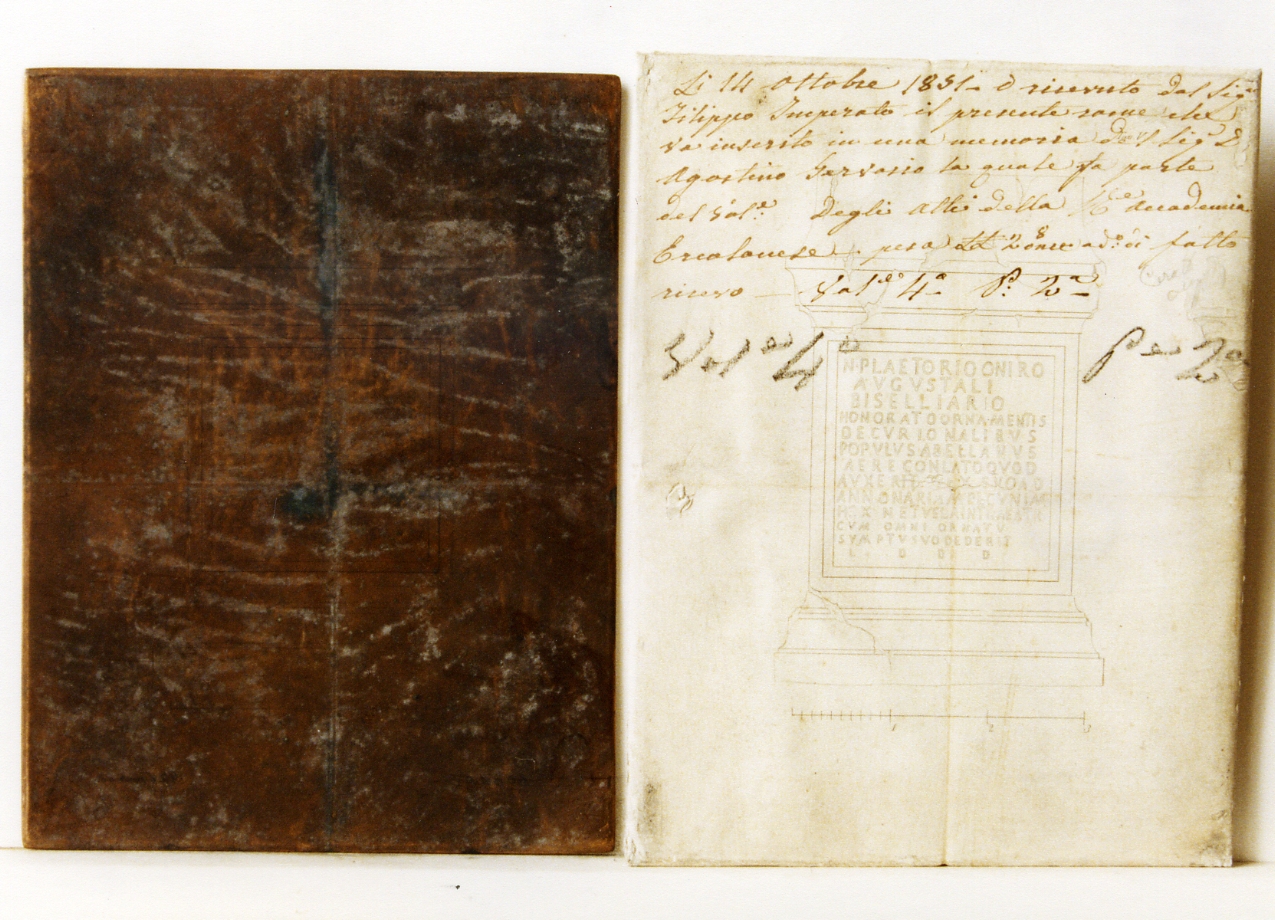 Li 14 Ottobre 1831 - ò ricevuto dal Sig.r
Filippo Imperato il presente rame che
va inserito in una memoria del Sig.r D.
Agostino Gervasio la quale fa parte
del Vol.e Degli Atti della R.le Accademia
Ercolanese. pesa fatto
ricevo Vol.e 4.o P.e 2.a
Vol.e 4.o P.e 2.a
N·PLAETORIO ONIRO
AVGVSTALI
BISELLIARIO
HONORATO ORNAMENTIS
DECVRIONALIBVS
POPVLVS ABELLANVS
AERE CONLATO QVOD
AVXERIT EX SVO AD
ANNONARIAM PECVNIAM
ET VELA IN THEATR
CVM OMNI ORNATV
SVMPTV SVO DEDERIT
L · D D D
1 2 3